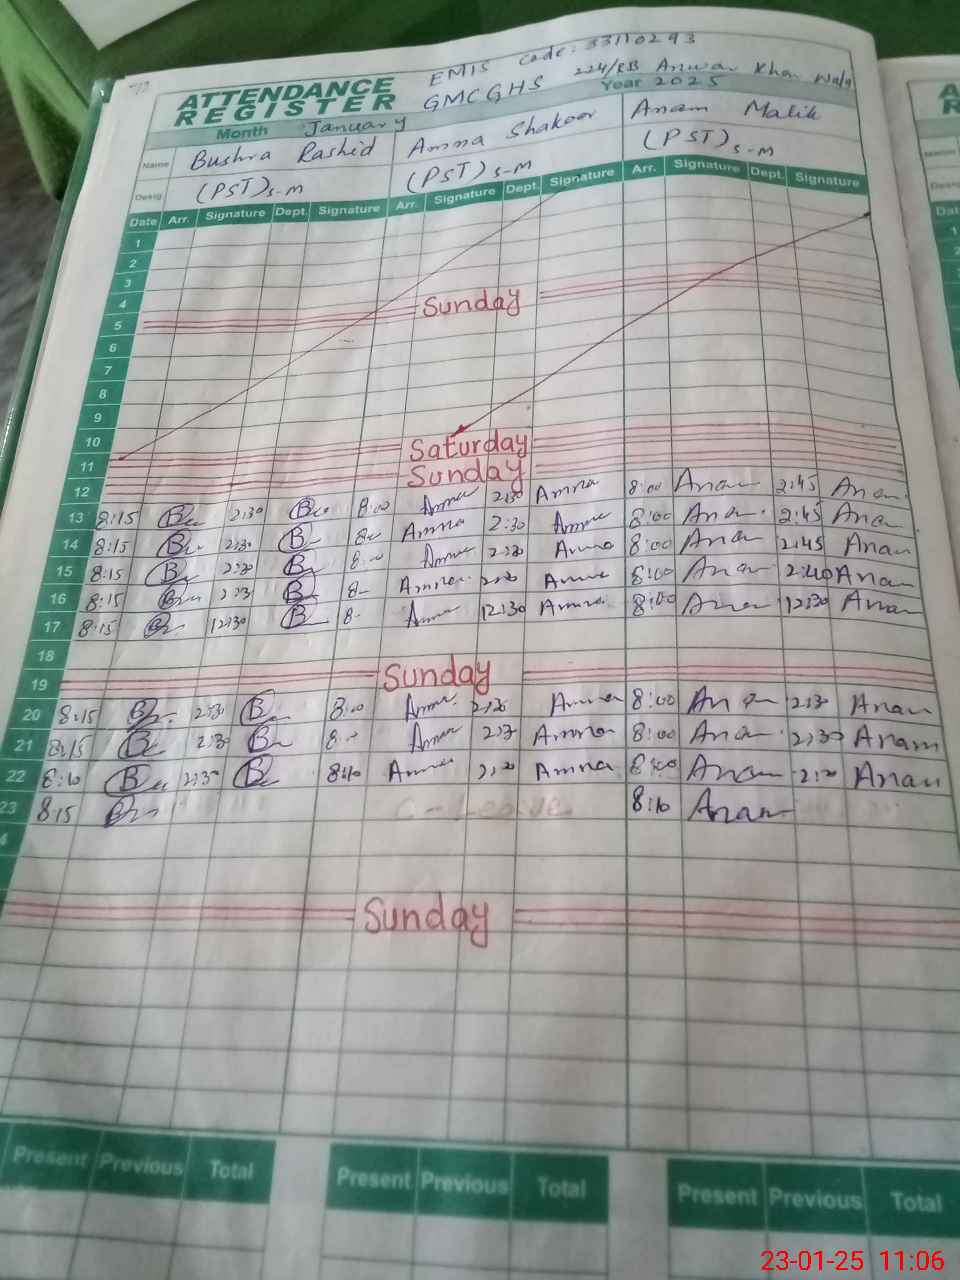 EMIS Code: 33110293
ATTENDANCE REGISTER
GMCGHS 224/RB Anwar Khan Wala
Month January Year 2025
Name Bushra Rashid Amna Shakoor Anam Malik
Desig (PST) S-M (PST) S-M (PST) S-M
Date Arr. Signature Dept. Signature Arr. Signature Dept. Signature Arr. Signature Dept. Signature
1
2
3
4
5 Sunday
6
7
8
9
10
11 Saturday
12 Sunday
13 8:15 2:30 8:00 Amna 2:30 Amna 8:00 Anam 2:45 Anam
14 8:15 2:30 Amna 2:30 Amna 8:00 Anam 2:45 Anam
15 8:15 2:30 8:00 Amna 2:30 Amna 8:00 Anam 2:45 Anam
16 8:15 Amna Amna 8:00 Anam 2:40 Anam
17 8:15 12:30 Amna 12:30 Amna 8:00 Anam 12:30 Anam
18
19 Sunday
20 8:15 2:30 8:00 Amna 2:30 Amna 8:00 Anam 2:30 Anam
21 8:15 2:30 Amna Amna 8:00 Anam 2:30 Anam
22 8:10 2:30 8:10 Amna Amna 8:00 Anam Anam
23 8:15 C-Leave 8:10 Anam
4
Sunday
Present Previous Total Present Previous Total Present Previous Total
23-01-25 11:06